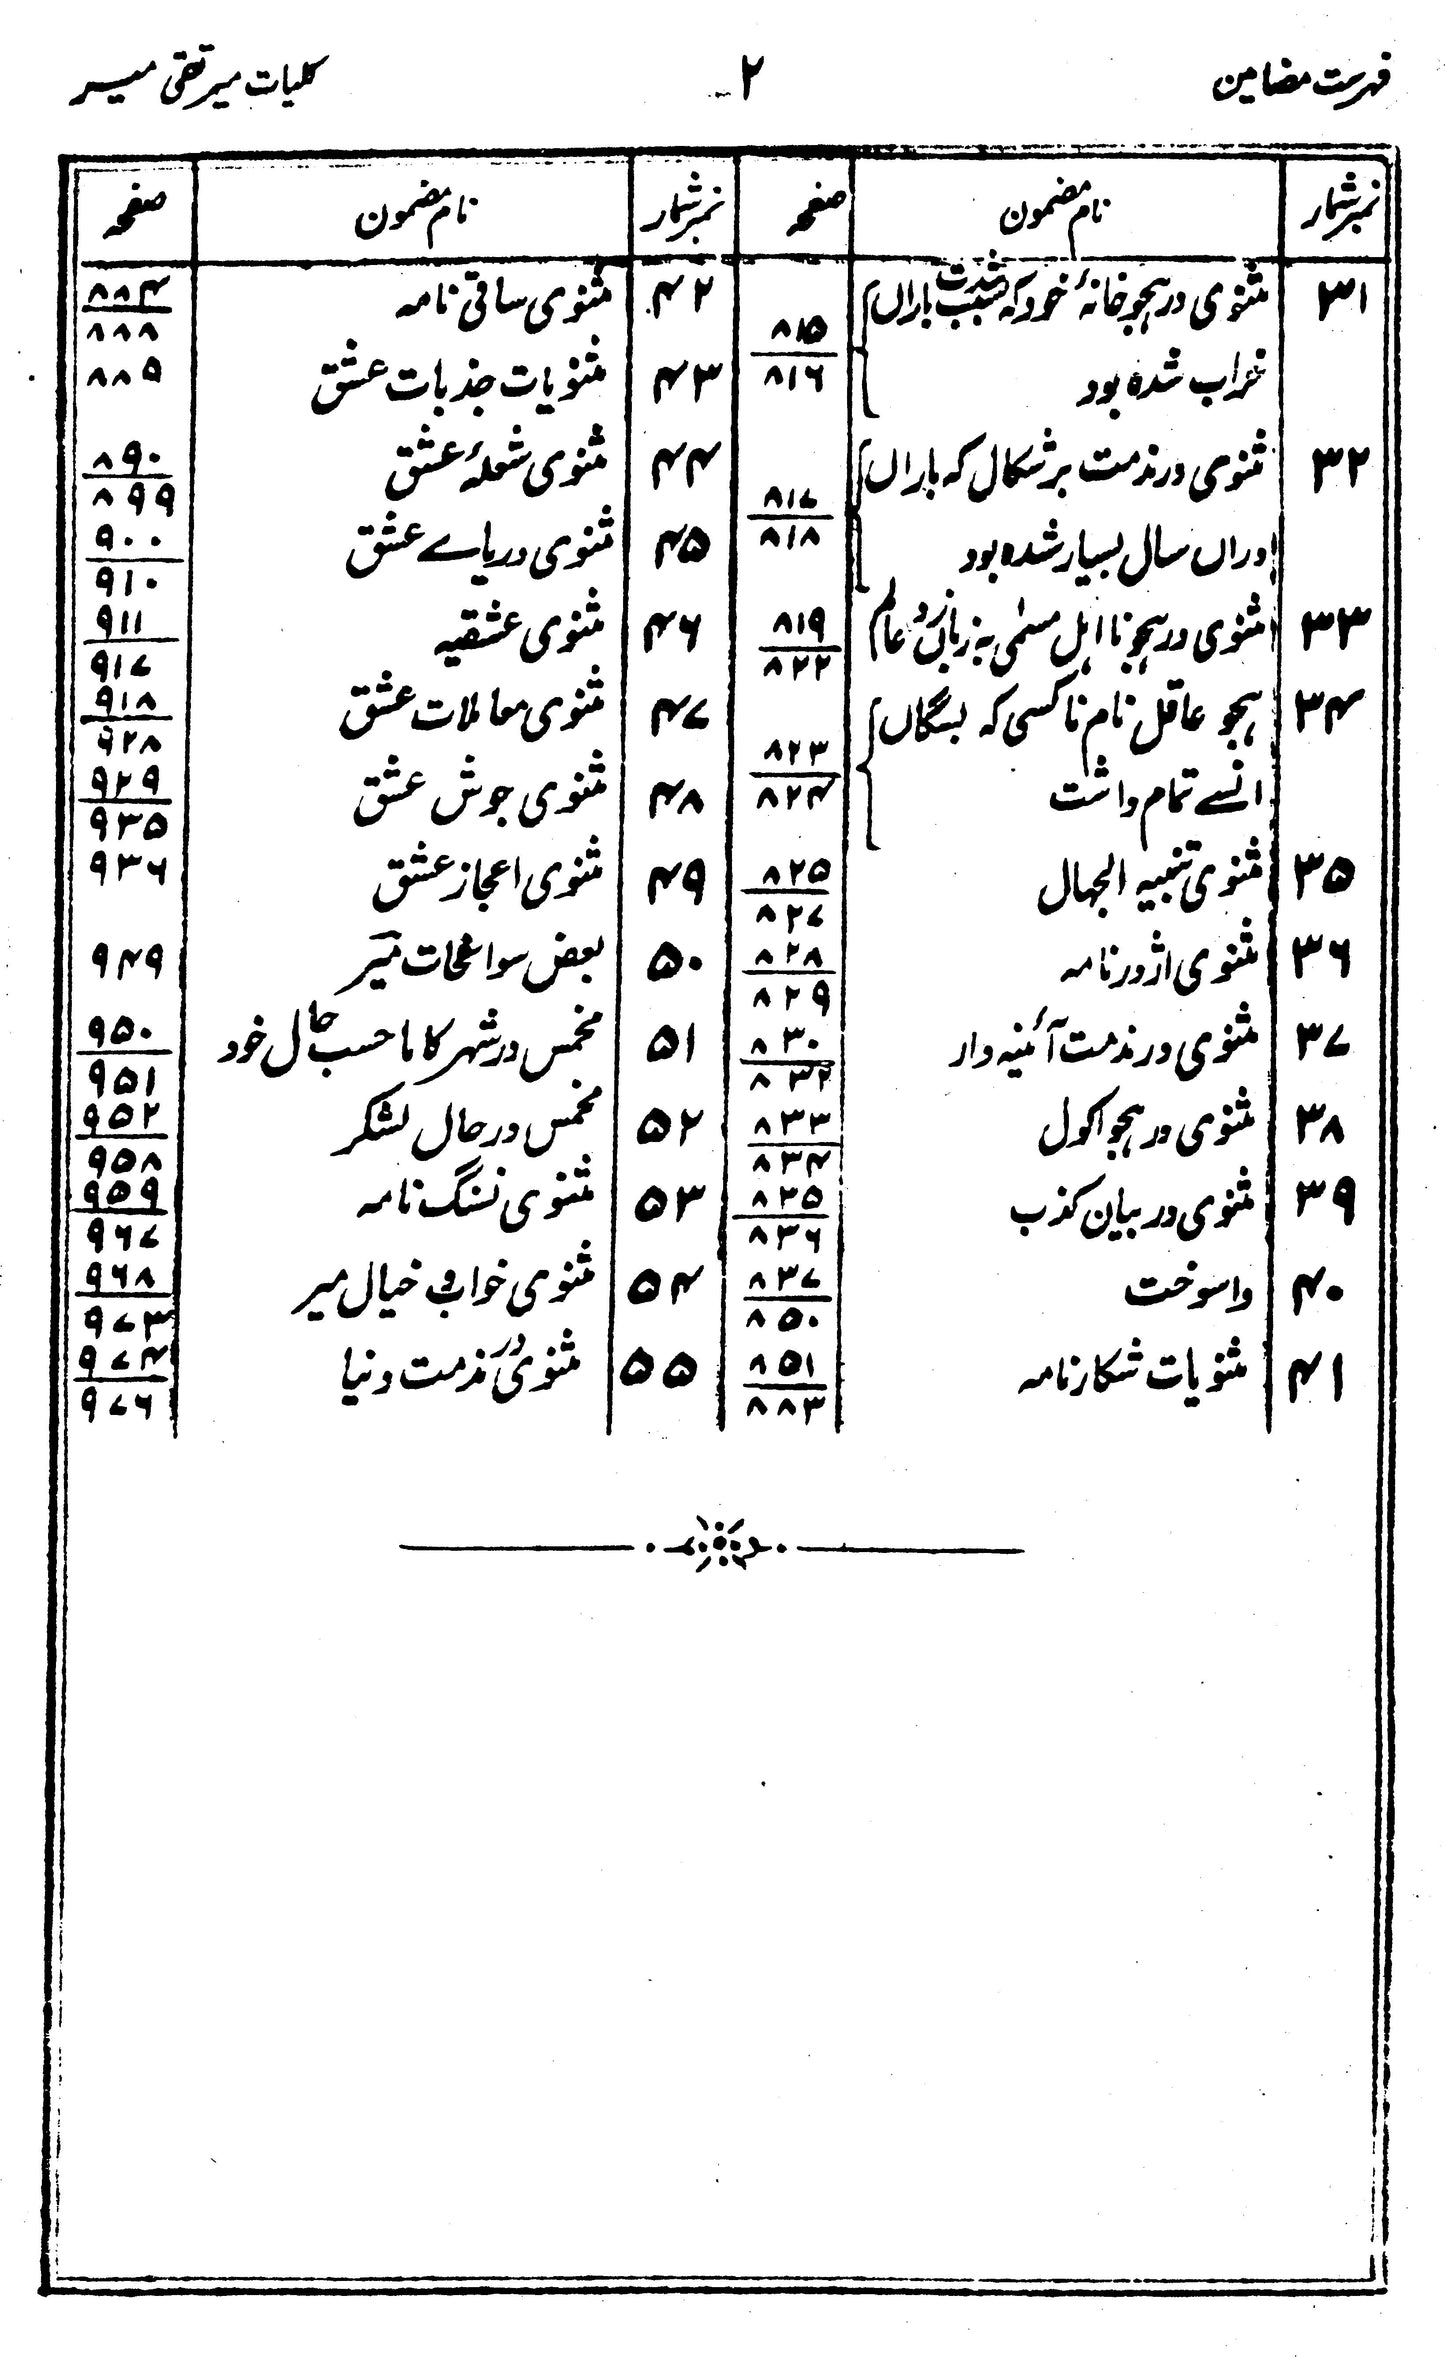 فہرست مضامین ۲ کلیات میر تقی میر
نمبر شمار نام مضمون صفحہ نمبر شمار نام مضمون صفحہ
۳۱ مثنوی در ہجو خانۂ خود کہ بسبب شدت باراں
خراب شدہ بود ۸۱۵ ۸۱۶
۳۲ مثنوی در مذمت برشکال کہ باراں
دراں سال بسیار شدہ بود ۸۱۷ ۸۱۸
۳۳ مثنوی در ہجو نا اہل مسمٰی بہ زبان زد عالم ۸۱۹ ۸۲۲
۳۴ ہجو عاقل نام ناکسی کہ بسگاں
انسے تمام داشت ۸۲۳ ۸۲۴
۳۵ مثنوی تنبیہ الجہال ۸۲۵ ۸۲۷
۳۶ مثنوی اژدر نامہ ۸۲۸ ۸۲۹
۳۷ مثنوی در مذمت آئینہ دار ۸۳۰ ۸۳۲
۳۸ مثنوی در ہجو اکول ۸۳۳ ۸۳۴
۳۹ مثنوی در بیان کذب ۸۳۵ ۸۳۶
۴۰ واسوخت ۸۳۷ ۸۵۰
۴۱ مثنویات شکار نامہ ۸۵۱ ۸۸۳
۴۲ مثنوی ساقی نامہ ۸۸۴ ۸۸۸
۴۳ مثنویات جذبات عشق ۸۸۹
۴۴ مثنوی شعلۂ عشق ۸۹۰ ۸۹۹
۴۵ مثنوی دریاے عشق ۹۰۰ ۹۱۰
۴۶ مثنوی عشقیہ ۹۱۱ ۹۱۷
۴۷ مثنوی معاملات عشق ۹۱۸ ۹۲۸
۴۸ مثنوی جوش عشق ۹۲۹ ۹۳۵
۴۹ مثنوی اعجاز عشق ۹۳۶
۵۰ بعض سوانحات میر ۹۴۹
۵۱ مخمس در شہر کاما حسب حال خود ۹۵۰ ۹۵۱
۵۲ مخمس در حال لشکر ۹۵۲ ۹۵۸
۵۳ مثنوی ننگ نامہ ۹۵۹ ۹۶۷
۵۴ مثنوی خواب و خیال میر ۹۶۸ ۹۷۳
۵۵ مثنوی در مذمت دنیا ۹۷۴ ۹۷۶